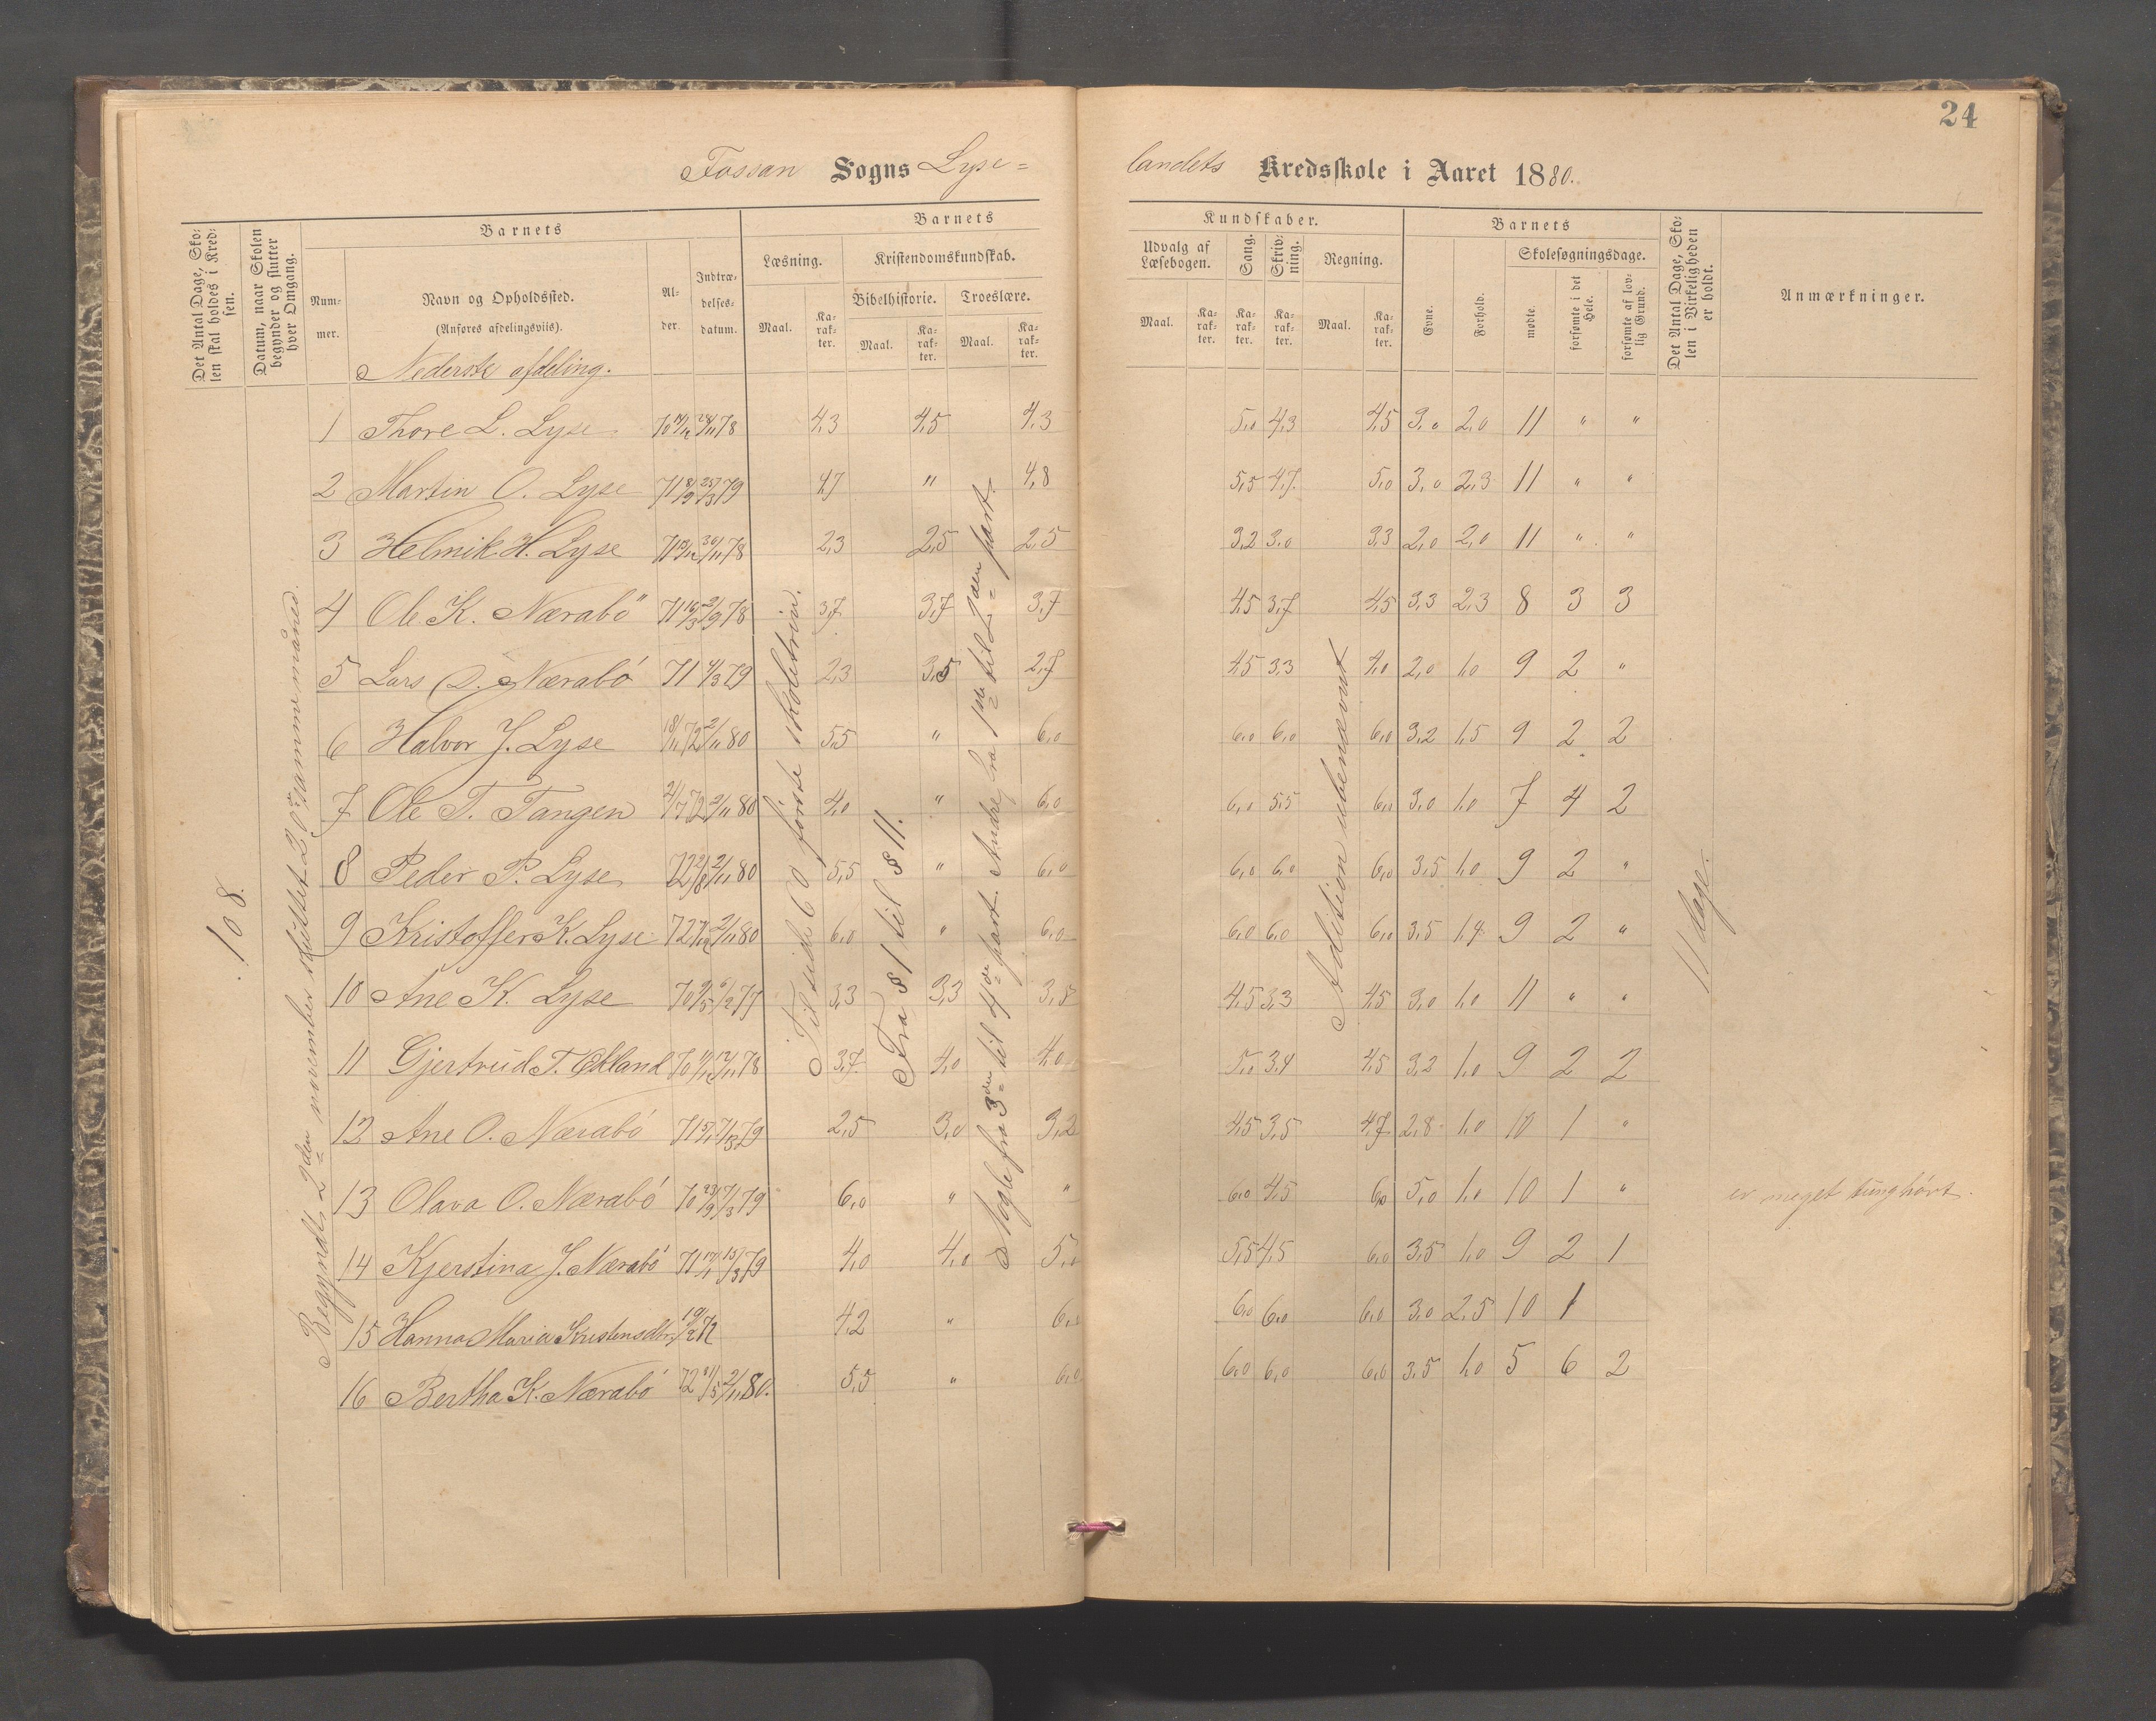 24
Fossan Sogns Lyse=
landets Kredsskole i Aaret 1880.
Det Antal Dage, Skolen skal holdes i Kredsen.
Datum, naar Skolen begynder og slutter hver Omgang.
Barnets
Nummer.
Navn og Opholdssted.
(Anføres afdelingsviis).
Alder.
Indtrædelsesdatum.
Barnets
Læsning.
Maal.
Karakter.
Kristendomskundskab.
Bibelhistorie.
Maal.
Karakter.
Troeslære.
Maal.
Karakter.
Kundskaber.
Udvalg af Læsebogen.
Maal.
Karakter.
Sang.
Karakter.
Skrivning.
Karakter.
Regning.
Maal.
Karakter.
Barnets
Evne.
Forhold.
Skolesøgningsdage.
mødte.
forsømte i det Hele.
forsømte af lovlig Grund.
Det Antal Dage, Skolen i Virkeligheden er holdt.
Anmærkninger.
Nederste afdeling.
108.
Begyndt 2den november sluttet 20de samme måned.
Til side 60 første skoletrin.
Fra § 1 til § 11.
Nogle fra 3den til 4de part. Andre fra 1ste til 2den part.
Addition ubenævnt
11 dage.
1 Thore L. Lyse 4,3 4,5 4,3 5,0 4,3 4,5 3,0 2,0 11 " "
2 Martin O. Lyse 4,7 " 4,8 5,5 4,7 5,0 3,0 2,3 11 " "
3 Helmik H. Lyse 2,3 2,5 2,5 3,2 3,0 3,3 2,0 2,0 11 " "
4 Ole K. Nærabö 3,7 3,7 3,7 4,5 3,7 4,5 3,3 2,3 8 3 3
5 Lars O. Nærabö 71 4/3 79 2,3 3,5 2,7 4,5 3,3 4,0 2,0 1,0 9 2 "
6 Halvor J. Lyse 18/11 72 2/11 80 5,5 " 6,0 6,0 6,0 6,0 3,2 1,5 9 2 2
7 Ole T. Tangen 2/7 72 2/11 80 4,0 " 6,0 6,0 5,5 6,0 3,0 1,0 7 4 2
8 Peder P. Lyse 2/11 80 5,5 " 6,0 6,0 6,0 6,0 3,5 1,0 9 2 "
9 Kristoffer K. Lyse 2/11 80 6,0 " 6,0 6,0 6,0 6,0 3,5 1,4 9 2 "
10 Ane K. Lyse 3,3 3,3 3,5 4,5 3,3 4,5 3,0 1,0 11 " "
11 Gjertrud T. 3,7 4,0 4,0 5,0 3,4 4,5 3,2 1,0 9 2 2
12 Ane O. Nærabö 2,5 3,0 3,2 4,5 3,5 4,7 2,8 1,0 10 1 "
13 Olava O. Nærabö 70 23/9 7/3 79 6,0 " " 6,0 4,5 6,0 5,0 1,0 10 1 " er meget tunghört.
14 Kjerstina J. Nærabö 71 17/1 15/3 79 4,0 4,0 5,0 5,5 4,5 6,0 3,5 1,0 9 2 1
15 Hanna Maria Kristensdtr. 19/2 72 4,2 " 6,0 6,0 6,0 6,0 3,0 2,5 10 1
16 Bertha K. Nærabö 2/11 80. 5,5 " 6,0 6,0 6,0 6,0 3,5 1,0 5 6 2